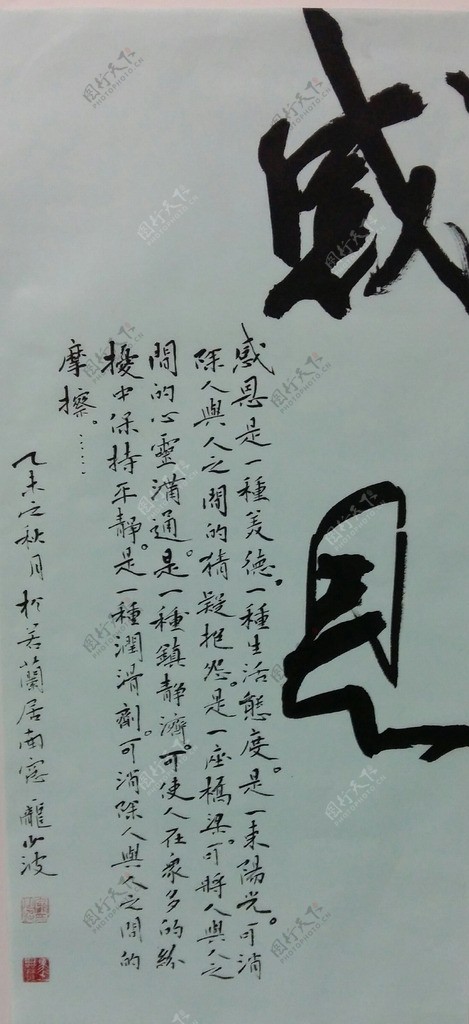 感恩
感恩是一種美德。一種生活態度。是一束陽光。可消
除人與人之間的猜疑抱怨。是一座橋梁。可將人與人之
間的心靈溝通。是一種鎮靜濟。可使人在眾多的紛
擾中保持平靜。是一種潤滑劑。可消除人與人之間的
摩擦。……
乙未之秋月於若蘭居南窓龍少波
图行天下 PHOTOPHOTO.CN